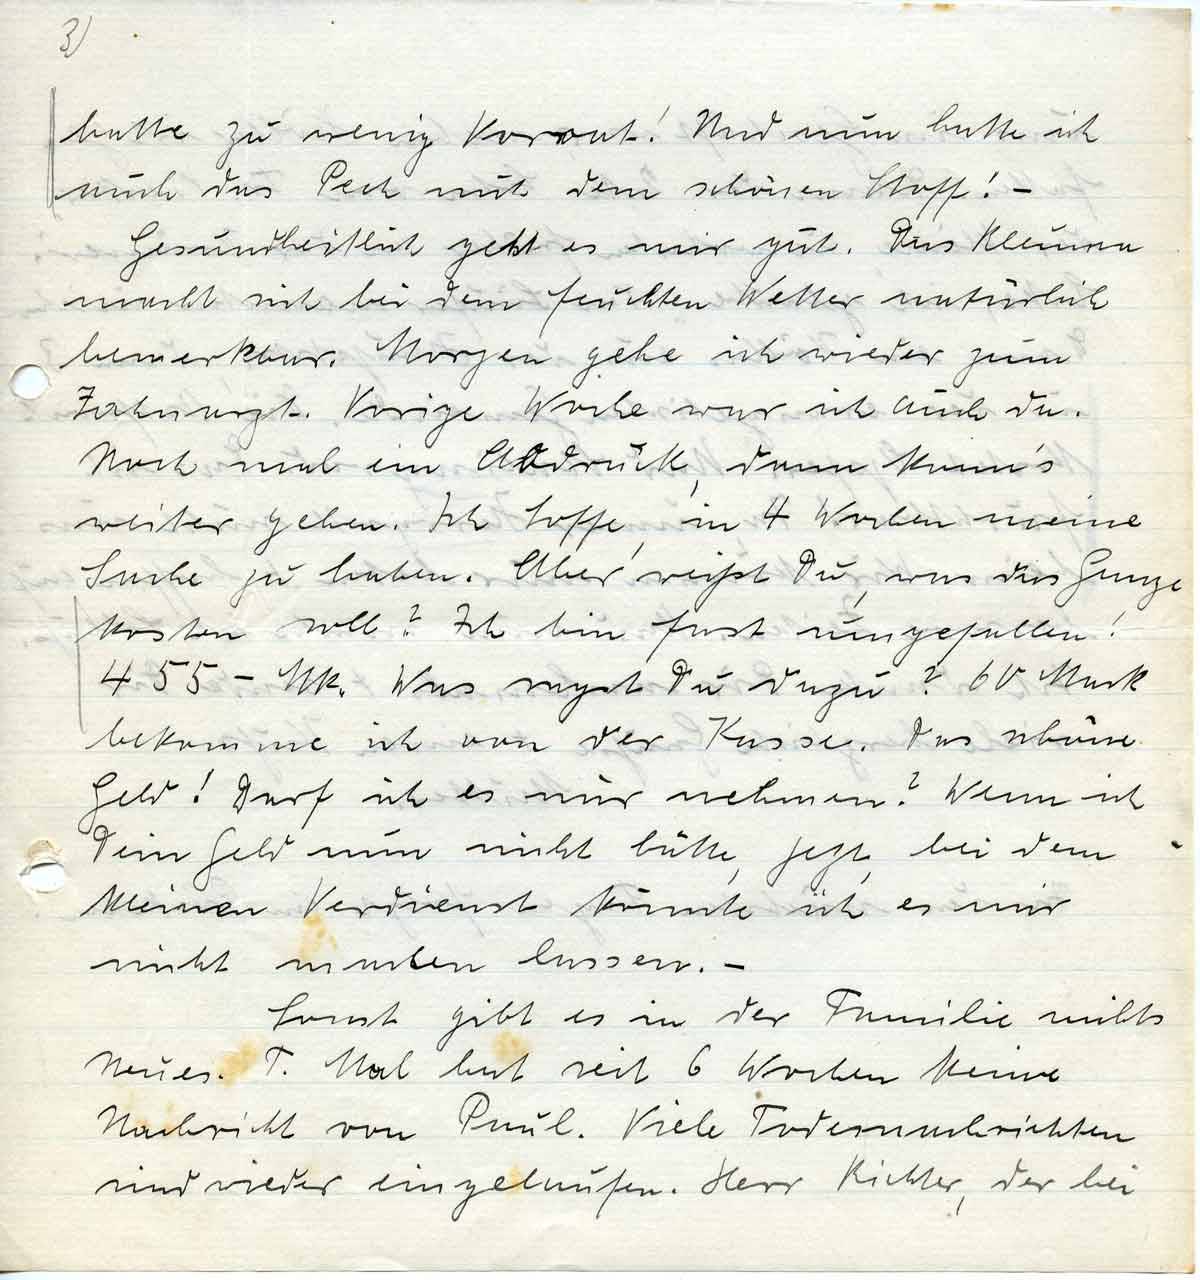 3)
hatte zu wenig Vorrat! Und nun hatte ich
auch das Pech mit dem schönen Stoff! –
Gesundheitlich geht es mir gut. Das Rheuma
macht sich bei dem feuchten Wetter natürlich
bemerkbar. Morgen gehe ich wieder zum
Zahnarzt. Vorige Woche war ich auch da.
Noch mal ein Abdruck, dann kann's
weiter gehen. Ich hoffe, in 4 Wochen meine
Sache zu haben. Aber weißt Du, was das Ganze
kosten soll? Ich bin fast umgefallen!
455 – Mk. Was sagst Du dazu? 60 Mark
bekomme ich von der Kasse. Das schöne
Geld! Darf ich es mir nehmen? Wenn ich
Dein Geld nun nicht hätte, jetzt, bei dem
kleinen Verdienst könnte ich es mir
nicht machen lassen. –
Sonst gibt es in der Familie nichts
Neues. T. Mal hat seit 6 Wochen keine
Nachricht von Paul. Viele Todesnachrichten
sind wieder eingelaufen. Herr Richter, der bei